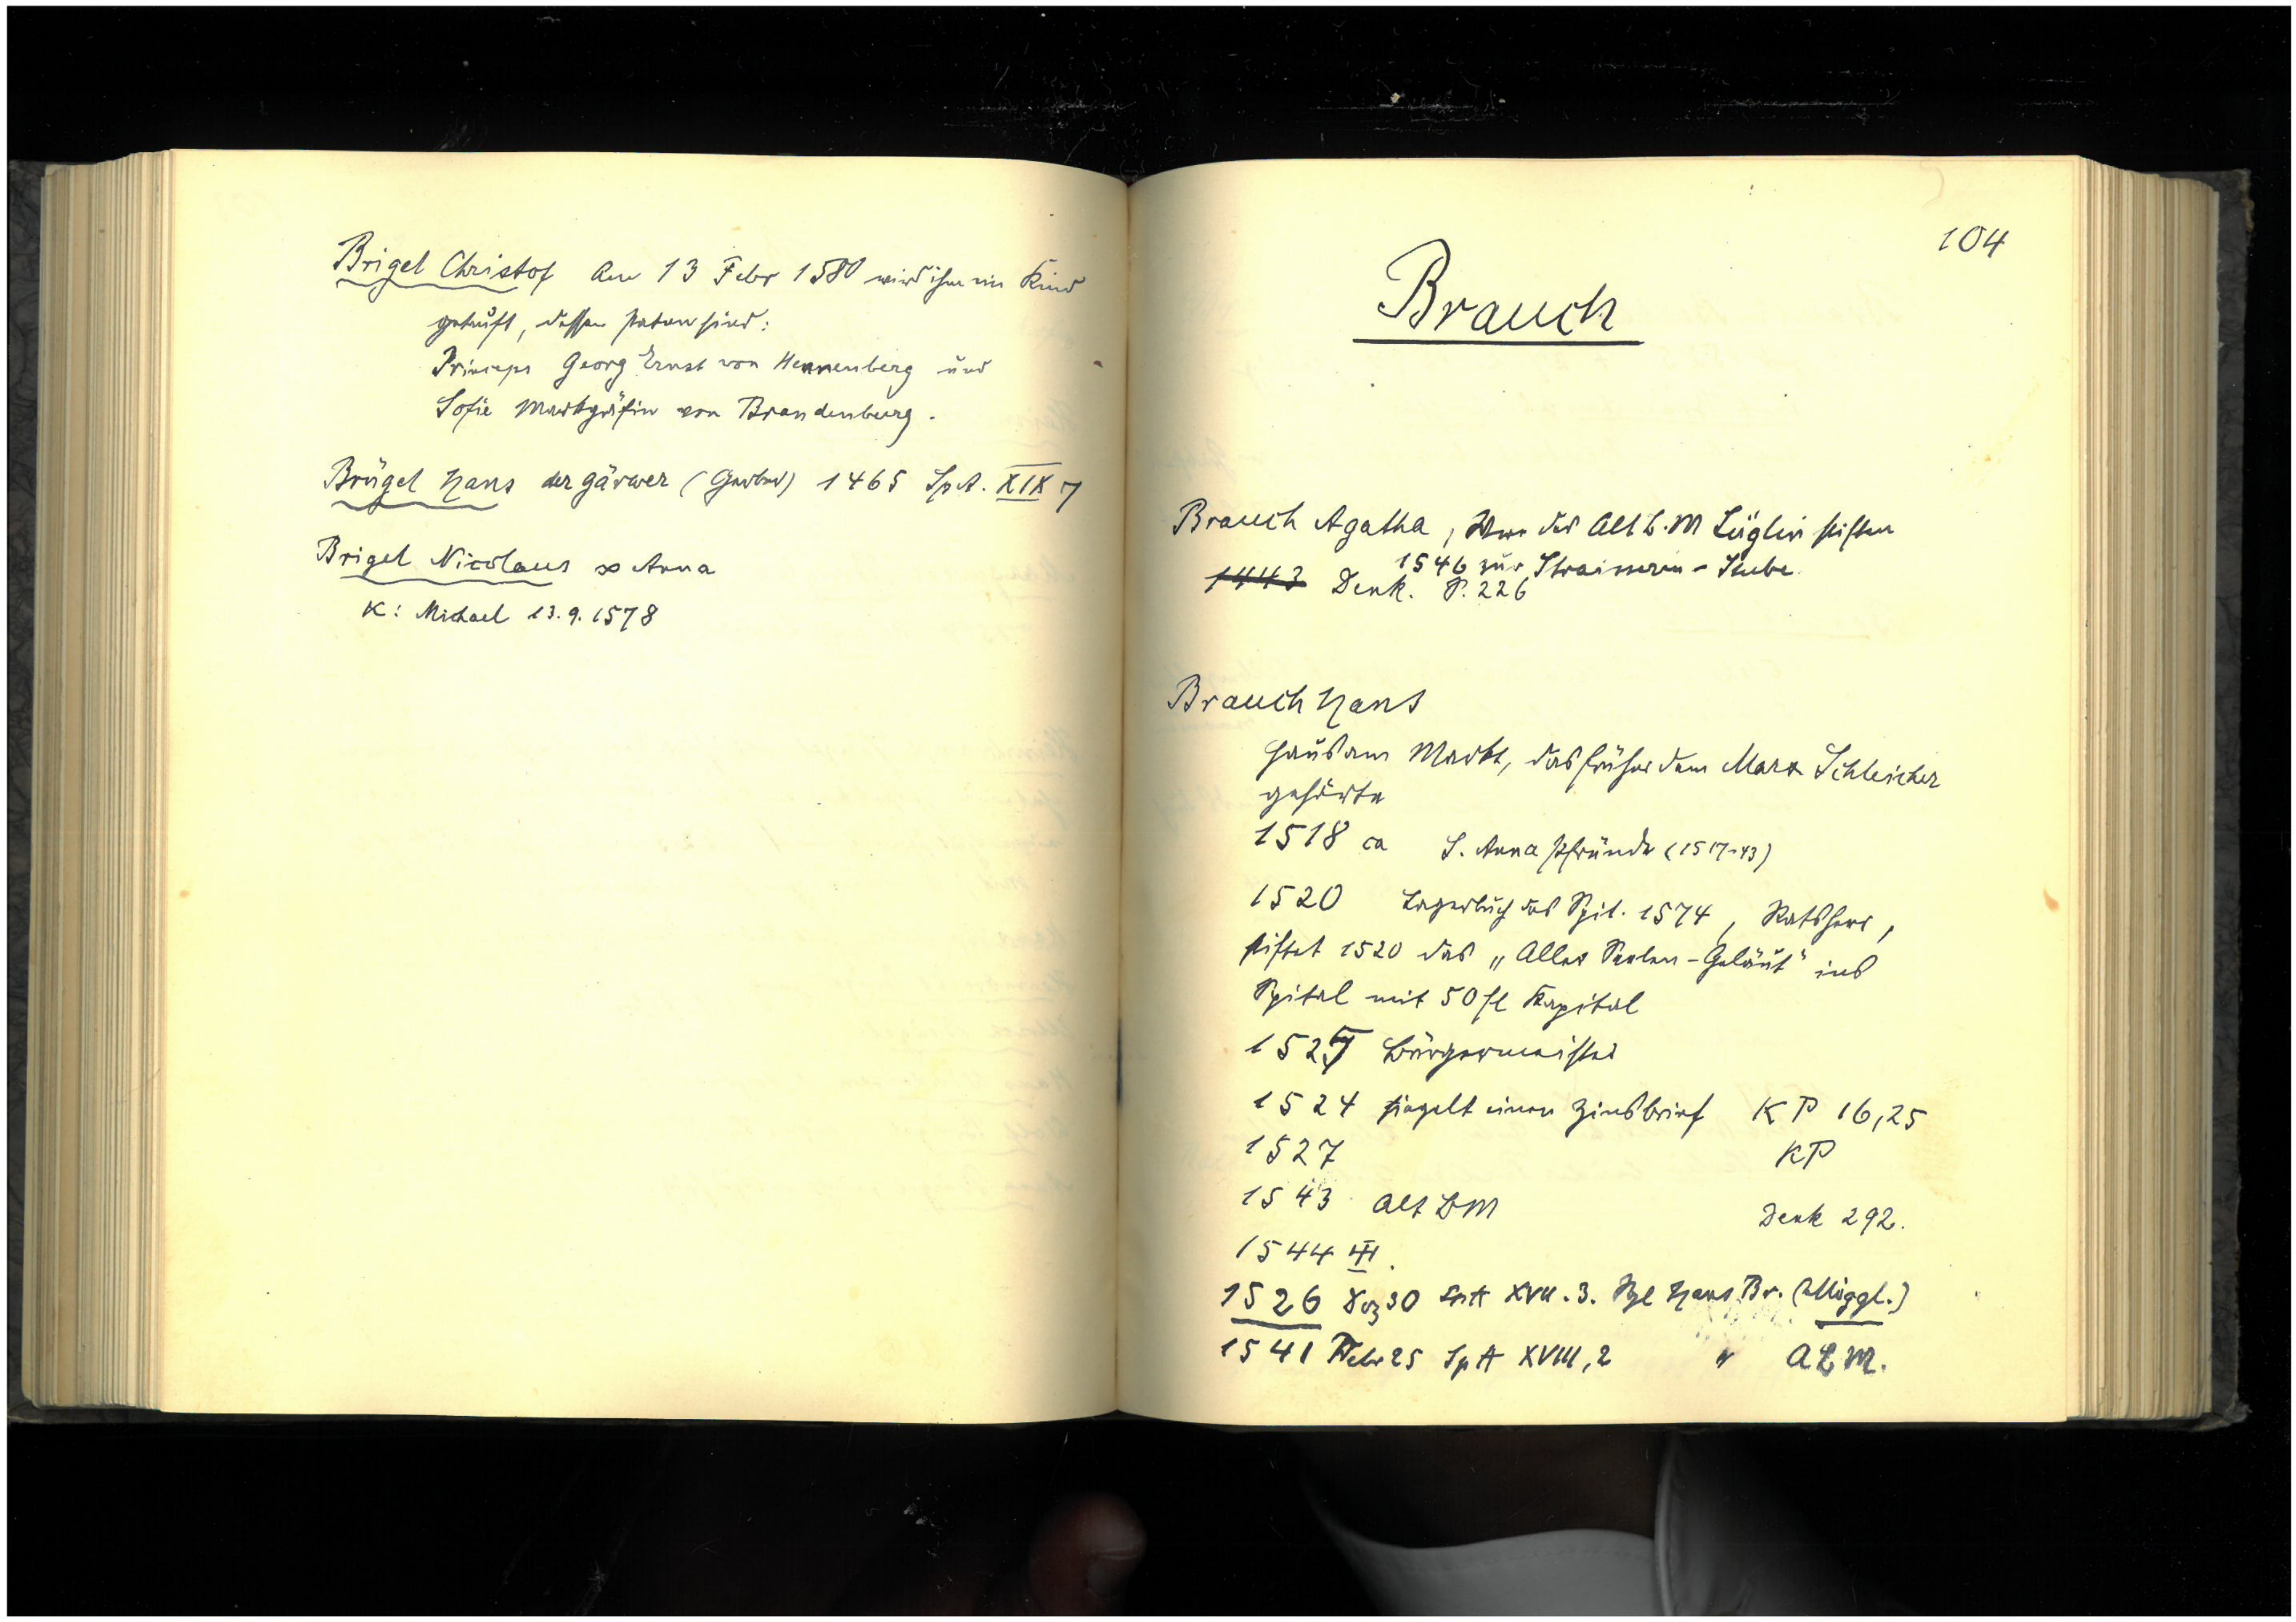 Brigel Christof Am 13 Febr 1580 wird ihm ein Kind
getauft, dessen Paten sind:
Princeps Georg Ernst von Hennenberg und
Sofie Markgräfin von Brandenburg.
Brügel Hans der gärwer (Gerber) 1465 SpA. XIX 7
Brigel Nicolaus ∞ Anna
K: Michael 13.9.1578
104
Brauch
Brauch Agatha, Wwe des Alt B.M Lüglin stiften
1546 zur Stube
1443 Denk. S. 226
Brauch Hans
Haus am Markt, das früher dem Marx Schleicher
gehörte
1518 ca S. Anna Pfründe (1517-43)
1520 Lagerbuch des Spit. 1574, Ratsherr,
stiftet 1520 das „Aller Seelen-Geläut" ins
Spital mit 50 fl Kapital
Bürgermeister
1524 siegelt einen Zinsbrief KP 16,25
1527 KP
1543 Alt BM Denk 292.
1544 III.
1526 Dez 30 SpA XVII.3. Sgl Hans Br. (Miggl.)
1541 Febr 25 SpA XVIII,2 " A B M.